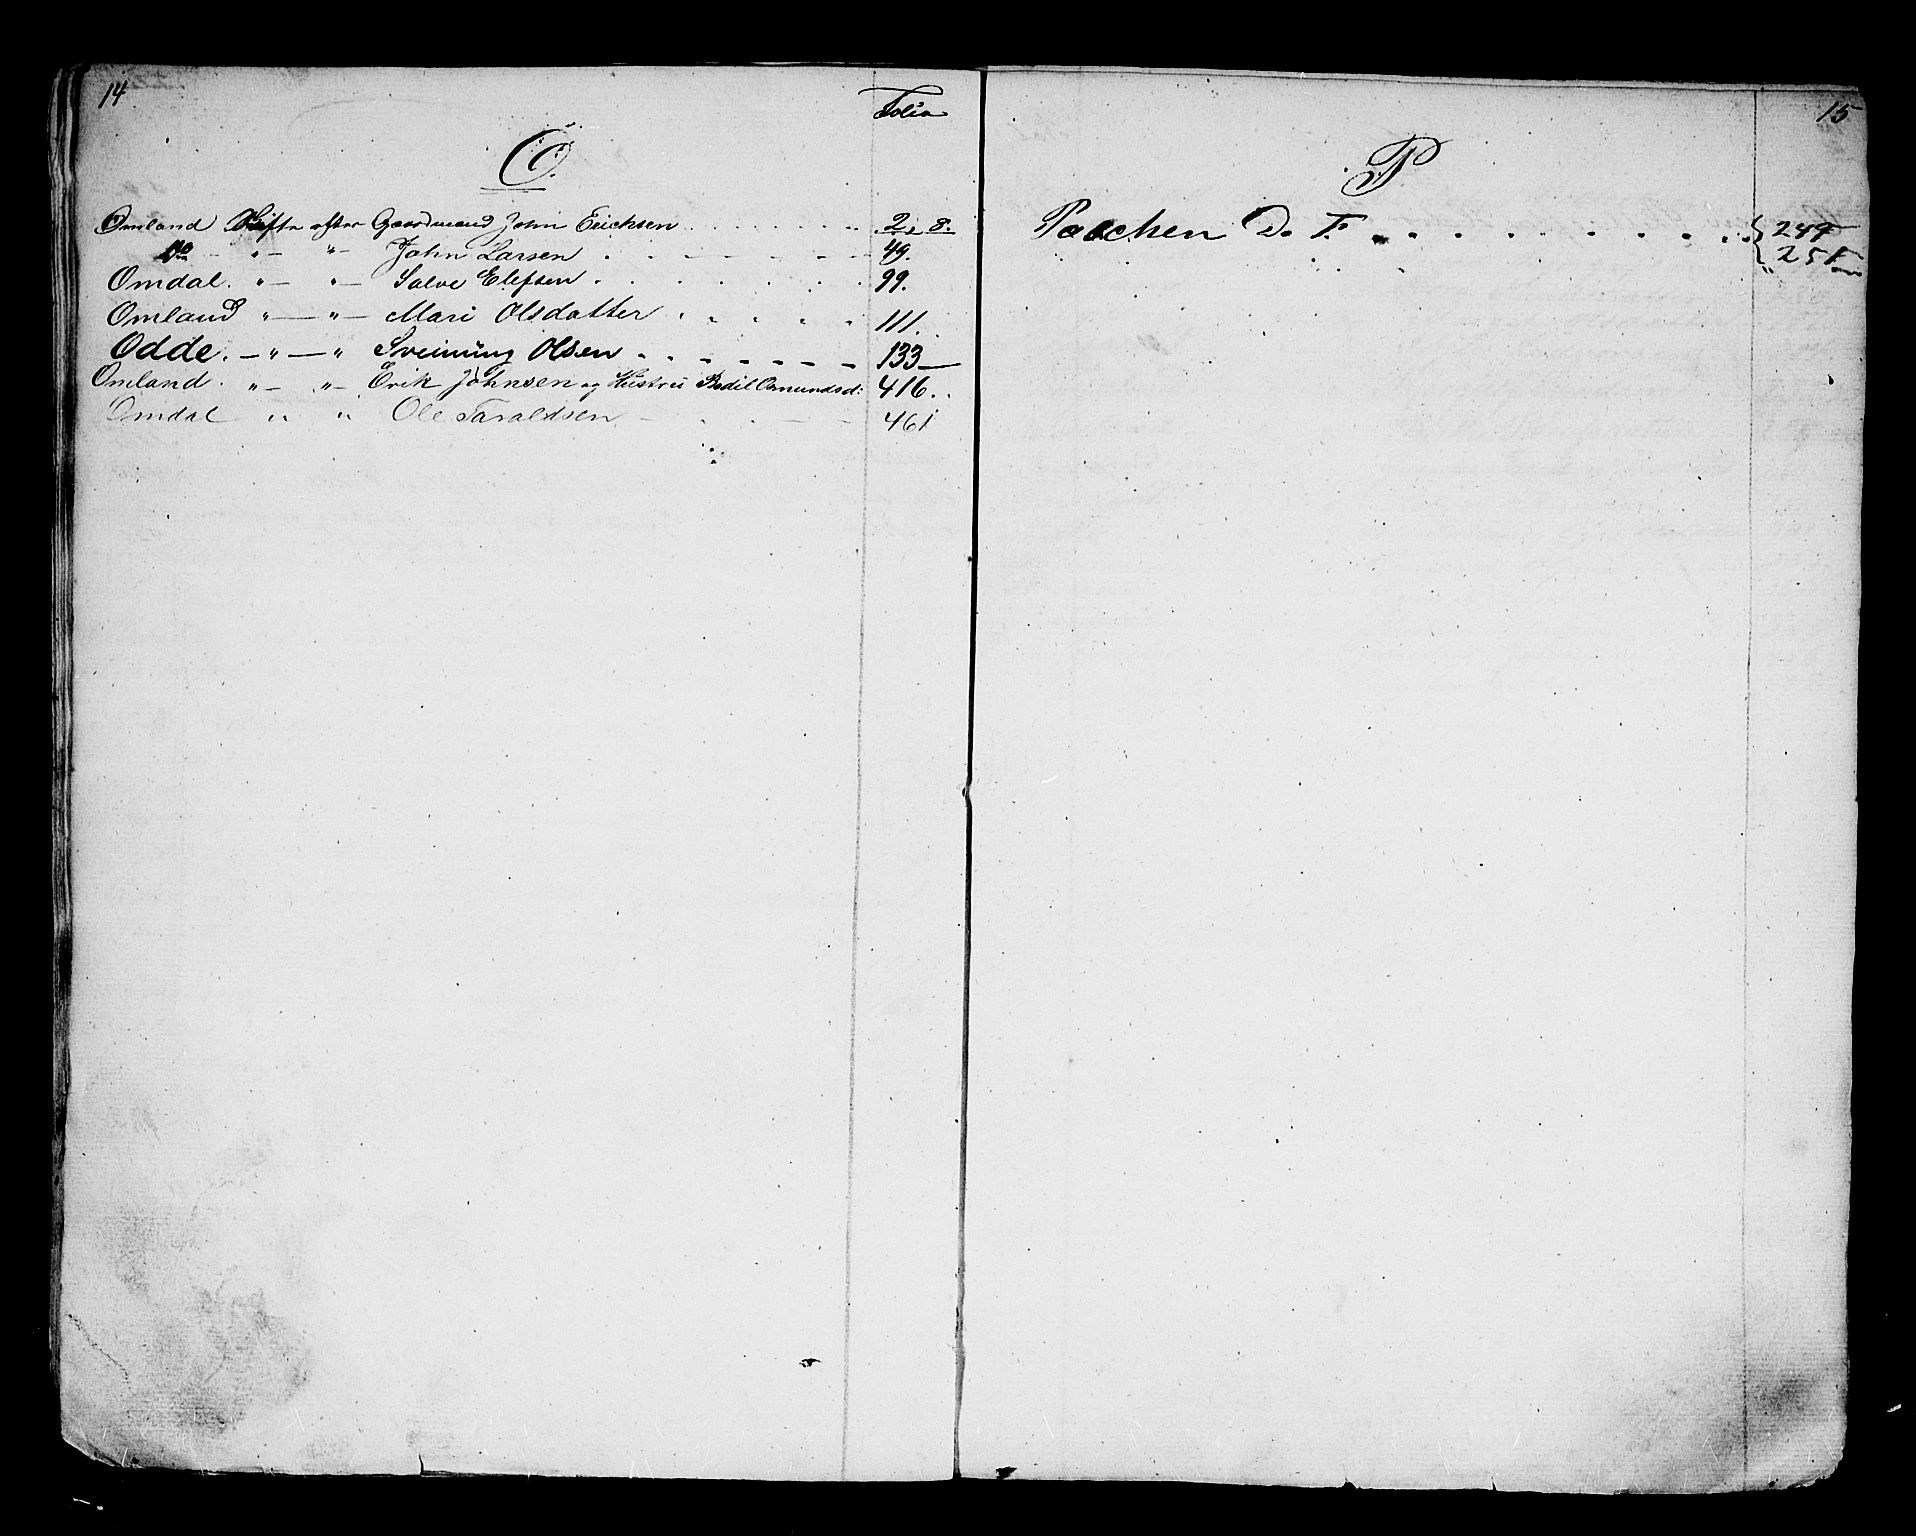 14
Folio
O.
Omland Skifte efter Gaardmand John Erichsen . . . . . . 2, 8.
do - " - " - John Larsen . . . . . . 49.
Omdal. " - " - Salve Elefsen . . . . . . 99.
Omland " - " - Mari Olsdatter . . . . . 111.
Odde. - " - " Sveinung Olsen . . . . . . 133 -
Omland. " - " - Erik Johnsen og Hustru Bodil Osmundsd: 416.
Omdal " " Ole Taraldsen - . . - - 461
15
P
Paschen D. F. . . . . . . . . . { 249
251